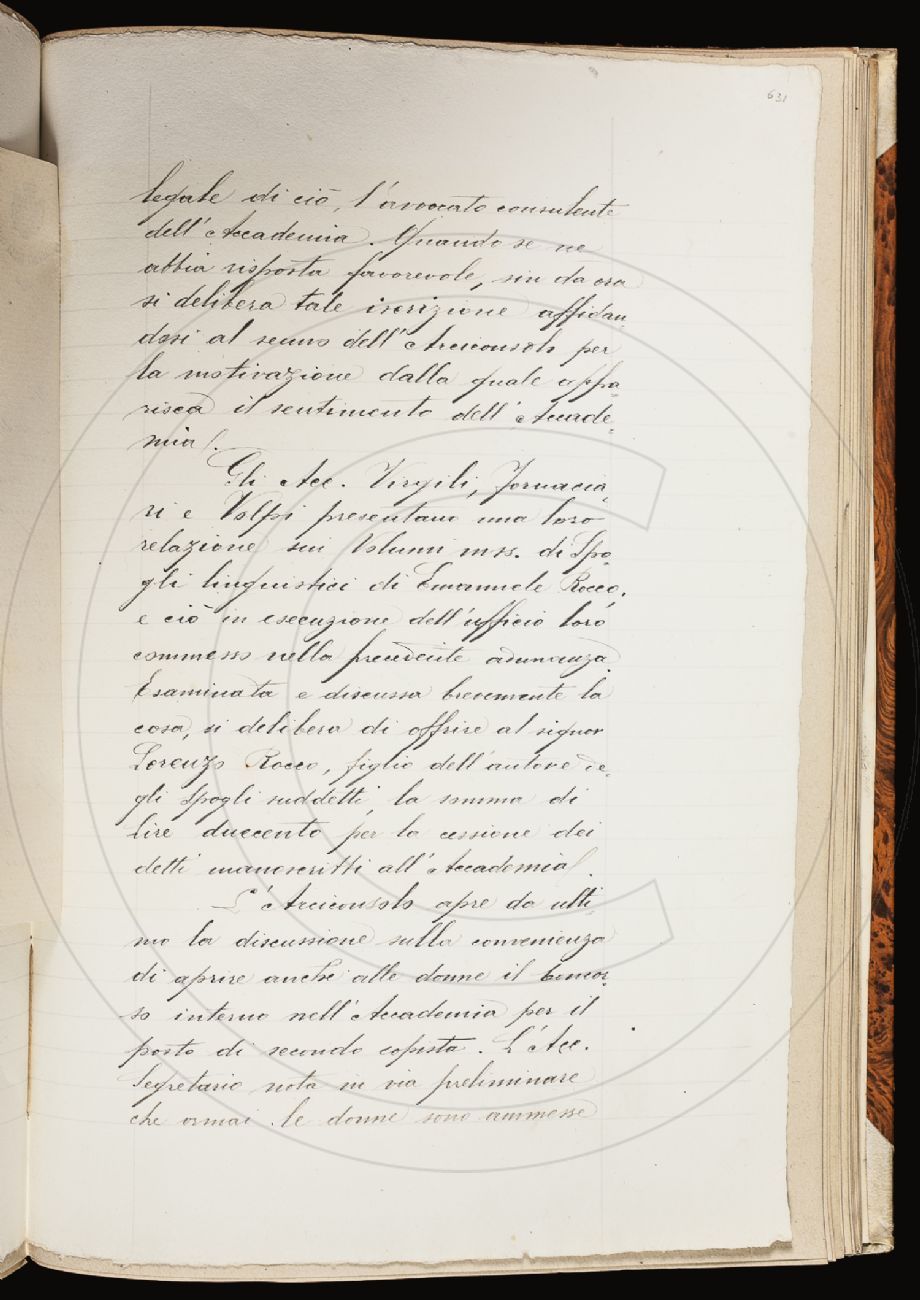 631
legale di ciò, l'avvocato consulente
dell'Accademia. Quando se ne
abbia risposta favorevole, sin da ora
si delibera tale iscrizione affidan-
dosi al senno dell'Arciconsolo per
la motivazione dalla quale appa-
risca il sentimento dell'Accade-
mia.
Gli Acc. Virgili, Fornacia-
ri e Volpi presentano una loro
relazione sui Volumi mss. di Spo-
gli linguistici di Emanuele Rocco,
e ciò in esecuzione dell'ufficio loro
commesso nella precedente adunanza.
Esaminata e discussa brevemente la
cosa, si delibera di offrire al signor
Lorenzo Rocco, figlio dell'autore de-
gli Spogli suddetti, la somma di
lire duecento per la cessione dei
detti manoscritti all'Accademia.
L'Arciconsolo apre da ulti-
mo la discussione sulla convenienza
di aprire anche alle donne il concor-
so interno nell'Accademia per il
posto di secondo copista. L'Acc.
Segretario nota in via preliminare
che ormai le donne sono ammesse